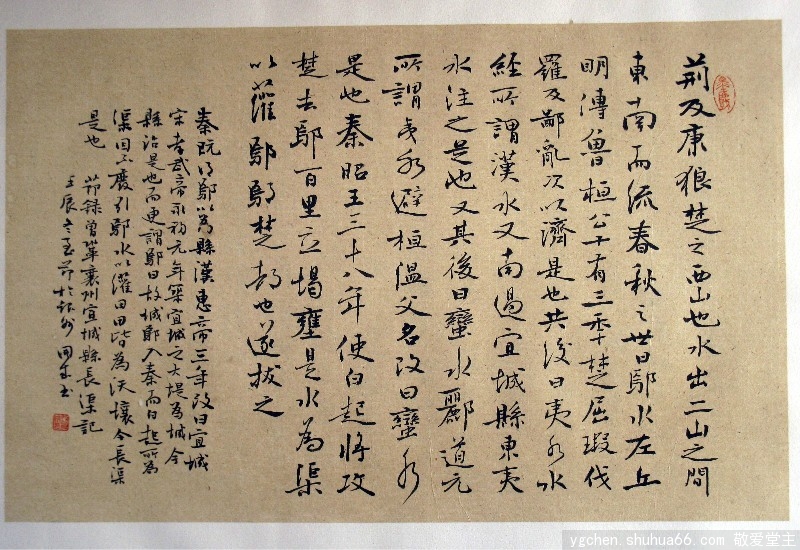 荆及康狼楚之西山也水出二山之間
東南而流春秋之世曰鄢水左丘
明傳魯桓公十有三年楚屈瑕伐
羅及鄢亂次以濟是也其後曰夷水水
經所謂漢水又南過宜城縣東夷
水注之是也又其後曰蠻水酈道元
所謂夷水避桓溫父名改曰蠻水
是也秦昭王三十八年使白起將攻
楚去鄢百里立堨壅是水為渠
以灌鄢鄢楚都也遂拔之
秦既得鄢以為縣漢惠帝三年改曰宜城
宋孝武帝永初元年築宜城之大堤為城今
縣治是也而更謂鄢曰故城鄢入秦而白起所為
渠因不廢引鄢水以灌田田皆為沃壤今長渠
是也
節錄曾鞏襄州宜城縣長渠記
壬辰冬至節於
ygchen.shuhua66.com 敬爱堂主